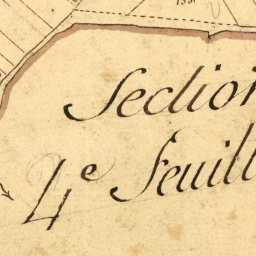 Section
4e Feuill